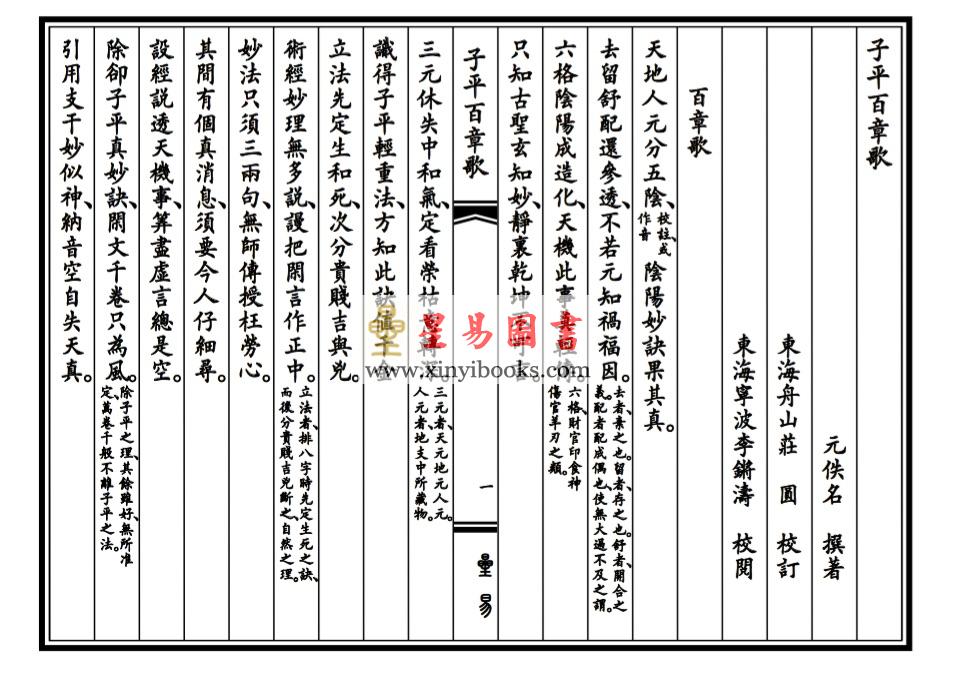 子平百章歌
元佚名　撰著
東海舟山莊　圓　校訂
東海寧波李鏘濤　校閱
百章歌
天地人元分五陰、校註：或作音陰陽妙訣果其真。
去留舒配還參透、不若元知禍福因。去者、棄之也。留者、存之也。舒者、開合之義。配者配成偶也、使無大過不及之謂。
六格陰陽成造化、天機此事莫輕傳。六格、財官印食神傷官羊刃之類。
只知古聖玄知妙、靜裏乾坤
子平百章歌
一
星易
三元休失中和氣、定看榮枯三元者、天元地元人元。人元者、地支中所藏物。
識得子平輕重法、方知此訣值千金
立法先定生和死、次分貴賤吉與兇。
術經妙理無多説、謾把閑言作正中。立法者、排八字時先定生死之訣、而後分貴賤吉兇斷之、自然之理。
妙法只須三兩句、無師傳授枉勞心。
其間有個真消息、須要今人仔細尋。
設經説透天機事、筭盡虛言總是空。
除卻子平真妙訣、閑文千卷只為風。除子平之理、其餘雖好、無所准定、萬卷千般不離子平之法。
引用支干妙似神、納音空自失天真。
星易圖書
www.xinyibooks.com